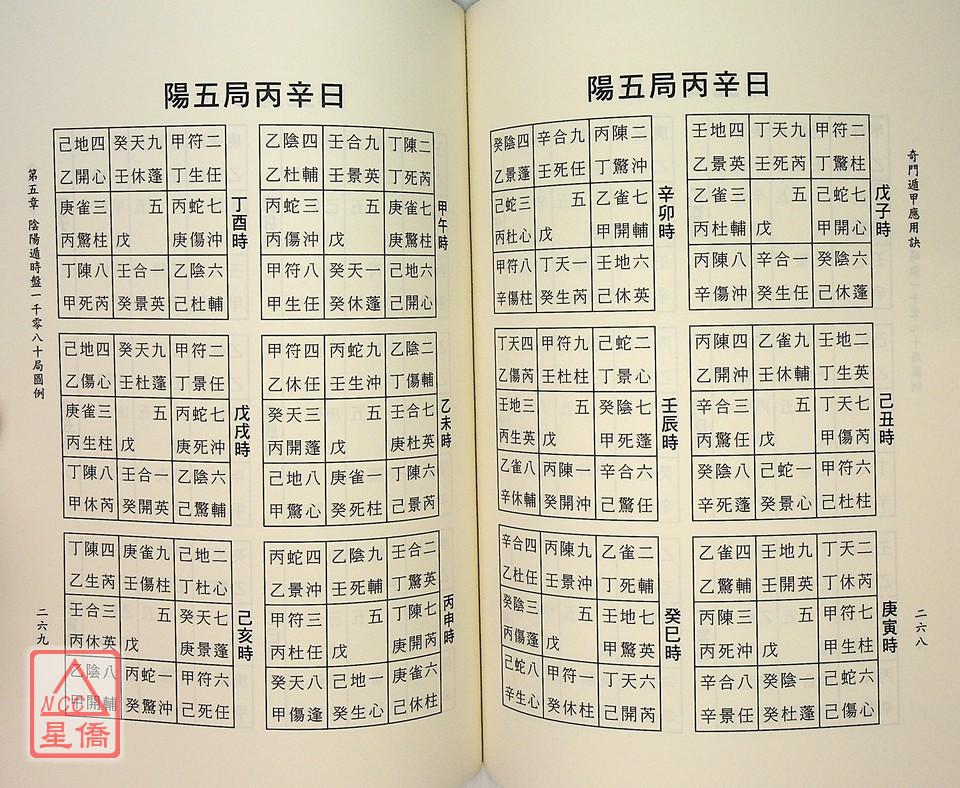 奇門遁甲應用訣
陽五局丙辛日
戊子時
壬地四 丁天九 甲符二
乙景英 壬死芮 丁驚柱
乙雀三 五 己蛇七
丙杜輔 戊 甲開心
丙陳八 辛合一 癸陰六
辛傷沖 癸生任 己休蓬
己丑時
丙陳四 乙雀九 壬地二
乙開沖 壬休輔 丁生英
辛合三 五 丁天七
丙驚任 戊 甲傷芮
癸陰八 己蛇一 甲符六
辛死蓬 癸景心 己杜柱
庚寅時
乙雀四 壬地九 丁天二
乙驚輔 壬開英 丁休芮
丙陳三 五 甲符七
丙死沖 戊 甲生柱
辛合八 癸陰一 己蛇六
辛景任 癸杜蓬 己傷心
辛卯時
癸陰四 辛合九 丙陳二
乙景蓬 壬死任 丁驚沖
己蛇三 五 乙雀七
丙杜心 戊 甲開輔
甲符八 丁天一 壬地六
辛傷柱 癸生芮 己休英
壬辰時
丁天四 甲符九 己蛇二
乙傷芮 壬杜柱 丁景心
壬地三 五 癸陰七
丙生英 戊 甲死蓬
乙雀八 丙陳一 辛合六
辛休輔 癸開沖 己驚任
癸巳時
辛合四 丙陳九 乙雀二
乙杜任 壬景沖 丁死輔
癸陰三 五 壬地七
丙傷蓬 戊 甲驚英
己蛇八 甲符一 丁天六
辛生心 癸休柱 己開芮
二六八
陽五局丙辛日
甲午時
乙陰四 壬合九 丁陳二
乙杜輔 壬景英 丁死芮
丙蛇三 五 庚雀七
丙傷沖 戊 庚驚柱
甲符八 癸天一 己地六
甲生任 癸休蓬 己開心
乙未時
甲符四 丙蛇九 乙陰二
乙休任 壬生沖 丁傷輔
癸天三 五 壬合七
丙開蓬 戊 庚杜英
己地八 庚雀一 丁陳六
甲驚心 癸死柱 己景芮
丙申時
丙蛇四 乙陰九 壬合二
乙景沖 壬死輔 丁驚英
甲符三 五 丁陳七
丙杜任 戊 庚開芮
癸天八 己地一 庚雀六
甲傷逢 癸生心 己休柱
丁酉時
己地四 癸天九 甲符二
乙開心 壬休蓬 丁生任
庚雀三 五 丙蛇七
丙驚柱 戊 庚傷沖
丁陳八 壬合一 乙陰六
甲死芮 癸景英 己杜輔
戊戌時
己地四 癸天九 甲符二
乙傷心 壬杜蓬 丁景任
庚雀三 五 丙蛇七
丙生柱 戊 庚死沖
丁陳八 壬合一 乙陰六
甲休芮 癸開英 己驚輔
己亥時
丁陳四 庚雀九 己地二
乙生芮 壬傷柱 丁杜心
壬合三 五 癸天七
丙休英 戊 庚景蓬
乙陰八 丙蛇一 甲符六
甲開輔 癸驚沖 己死任
第五章 陰陽遁時盤一千零八十局圖例
二六九
NCC
星僑